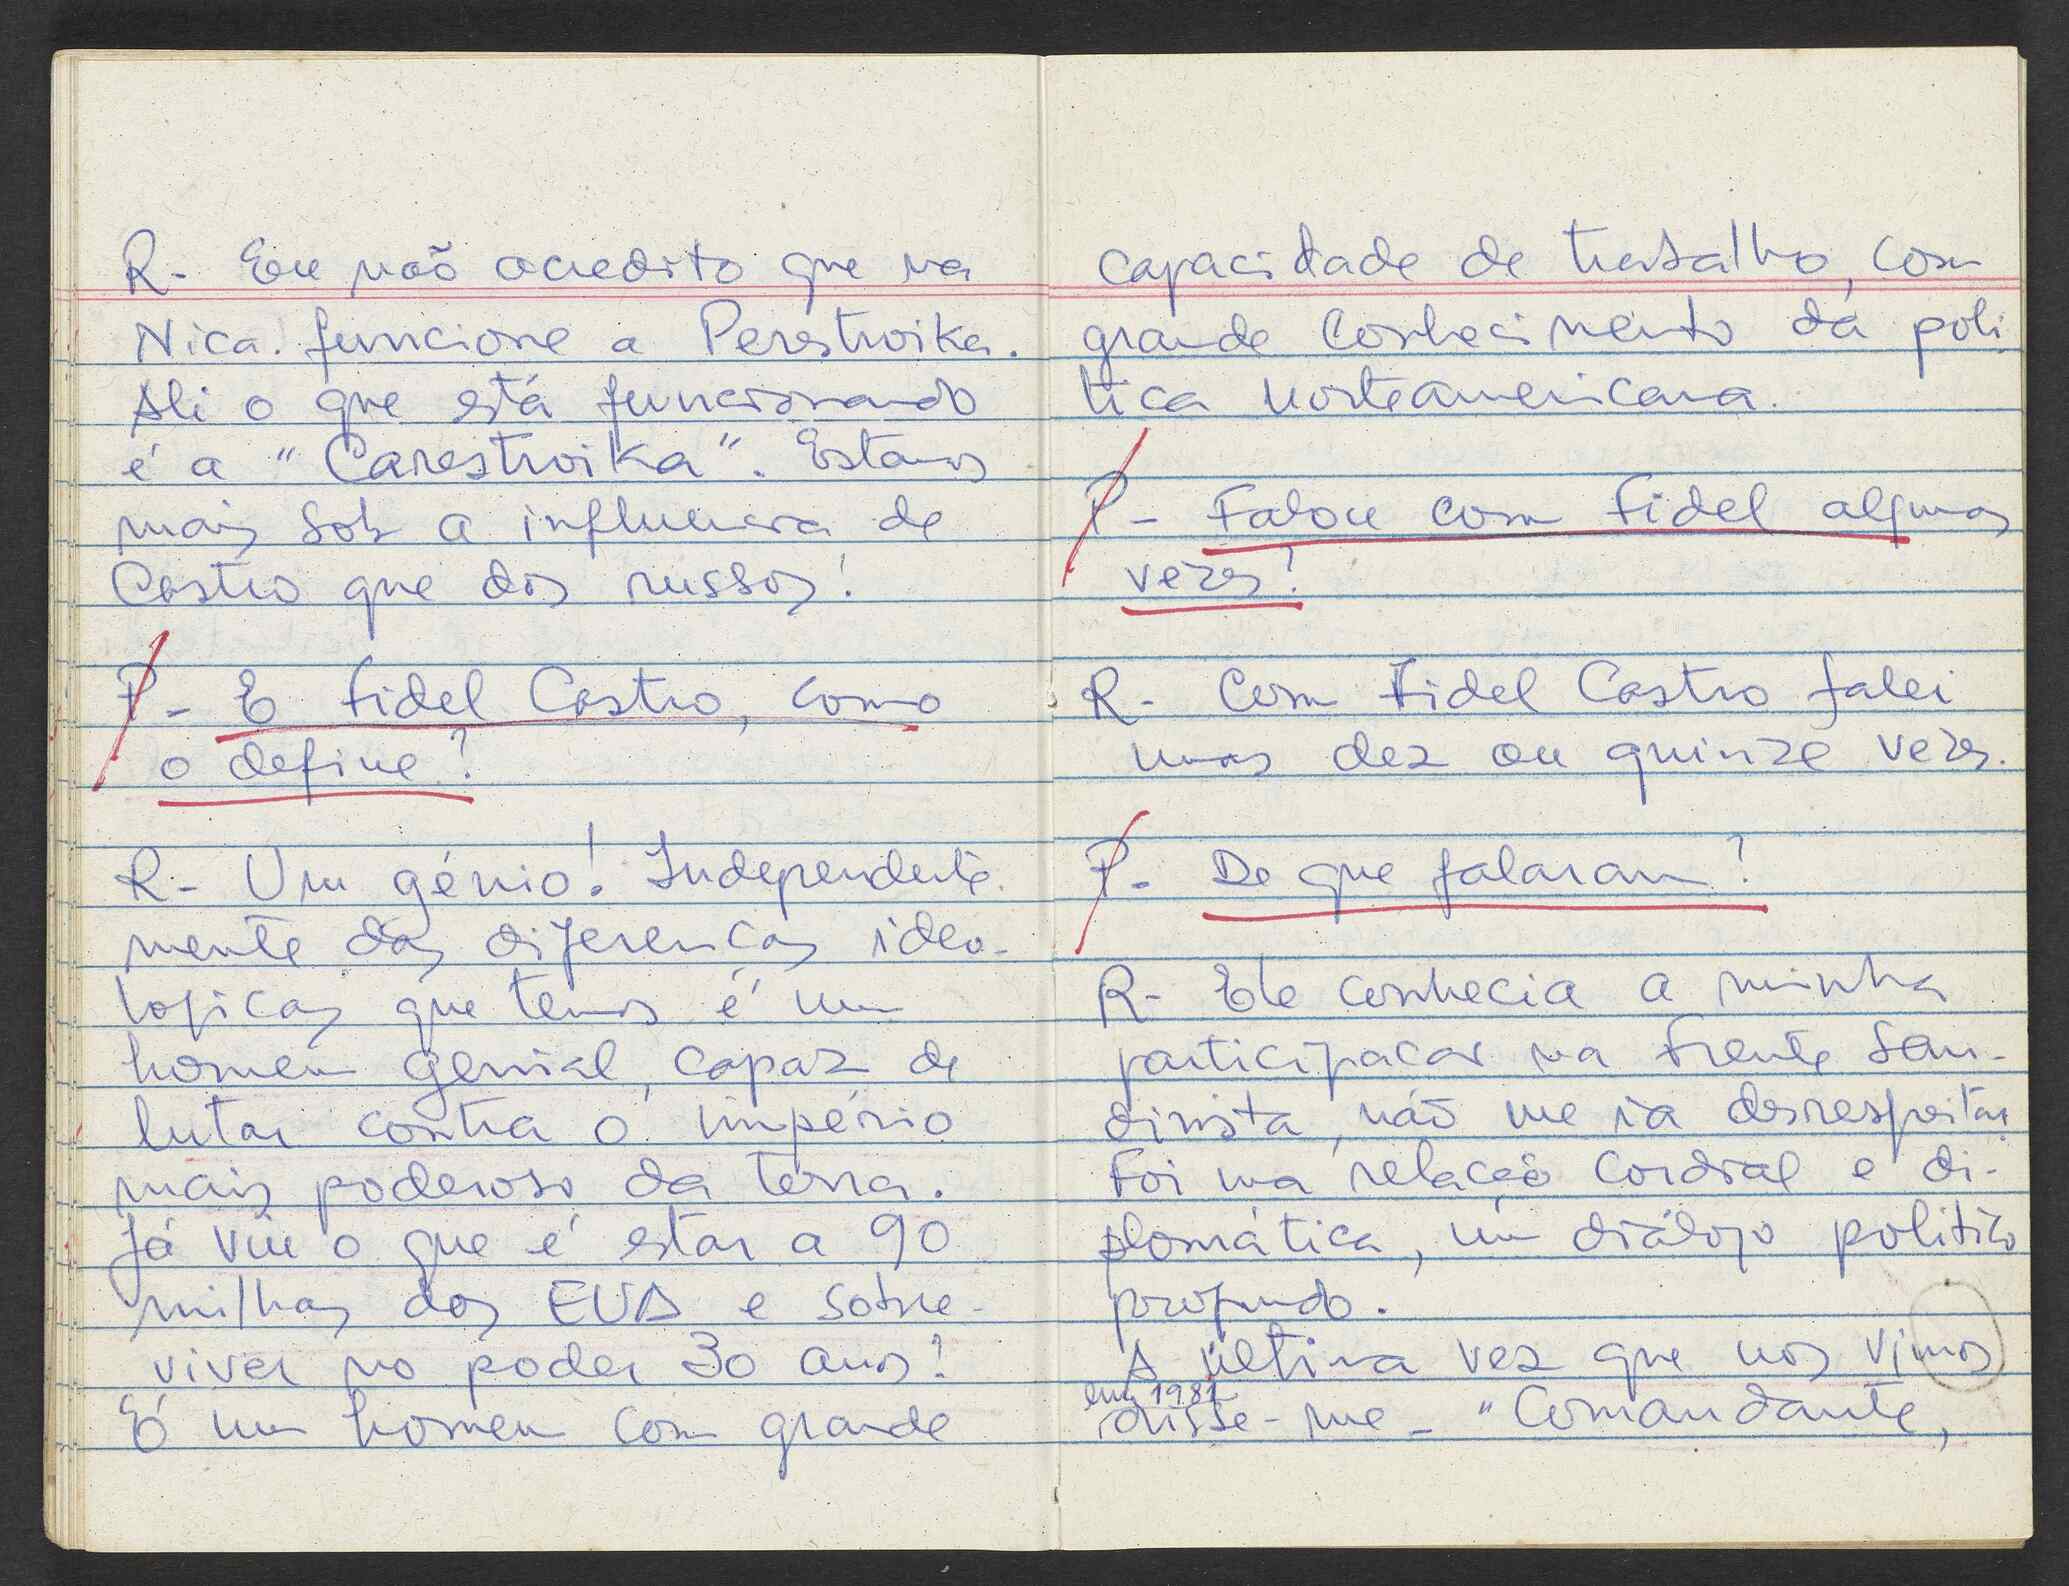 R- Eu não acredito que na
Nica. funcione a Perestroika.
Ali o que está funcionando
é a "Carestroika". Estamos
mais sob a influencia de
Castro que dos russos!
P- E Fidel Castro, como
o define?
R- Um génio! Independente
mente das diferenças ideo-
logicas que temos é um
homem genial, capaz de
lutar contra o império
mais poderoso da terra.
Já viu o que é estar a 90
milhas dos EUA e sobre-
viver no poder 30 anos?
É um homem com grande
capacidade de trabalho, com
grande conhecimento da poli
tica norteamericana.
P- Falou com Fidel algumas
vezes?
R- Com Fidel Castro falei
umas dez ou quinze vezes.
P- De que falaram?
R- Ele conhecia a minha
participacao na Frente San-
dinista, não me ia desrespeitar.
Foi uma relação cordial e di-
plomática, um diálogo politico
profundo.
A última vez que nos vimos
em 1981
disse-me - "Comandante,